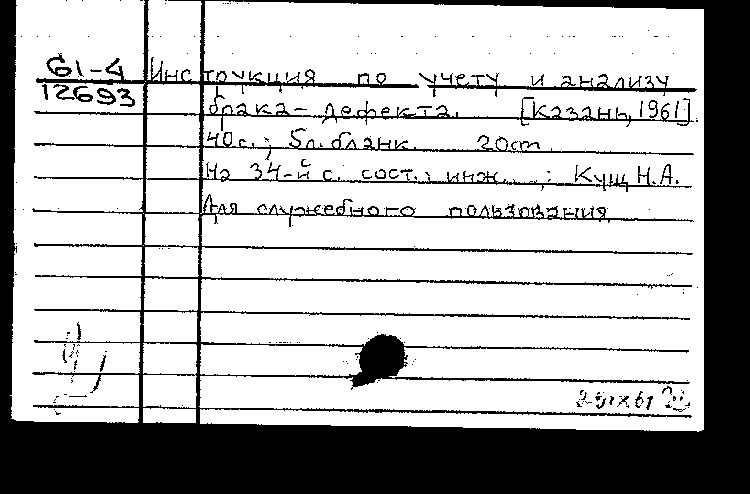 61-4
12693
Инструкция по учету и анализу
брака-дефекта. [Казань, 1961].
40 с.; 5 л. бланк. 20 cm.
На 34-й с. сост.: инж. ...; Кущ Н.А.
Для служебного пользования.